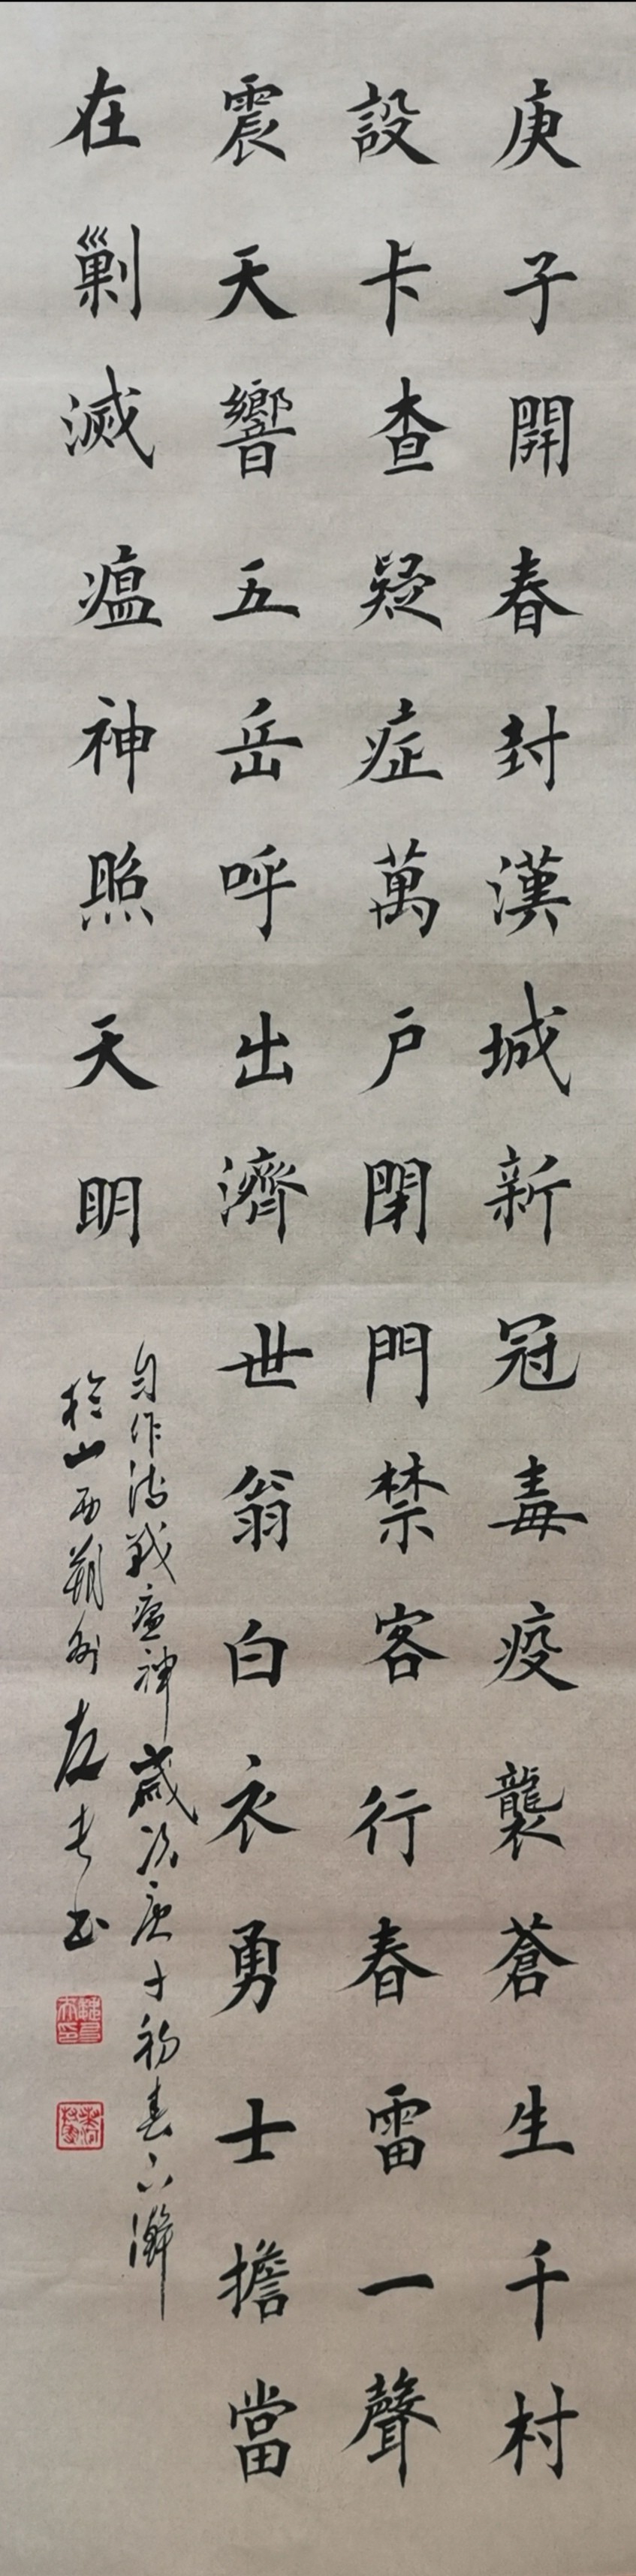 庚子開春封漢城新冠毒疫襲蒼生千村
設卡查疑症萬户閉門禁客行春雷一聲
震天響五岳呼出濟世翁白衣勇士擔當
在剿滅瘟神照天明
自作詩戰瘟神歲次庚子初春下澣
於山西朔州友书